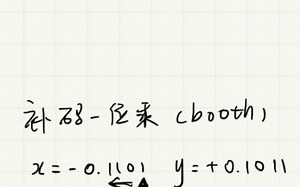 补码一位乘（booth）
x = - 0.1101 y = + 0.1011